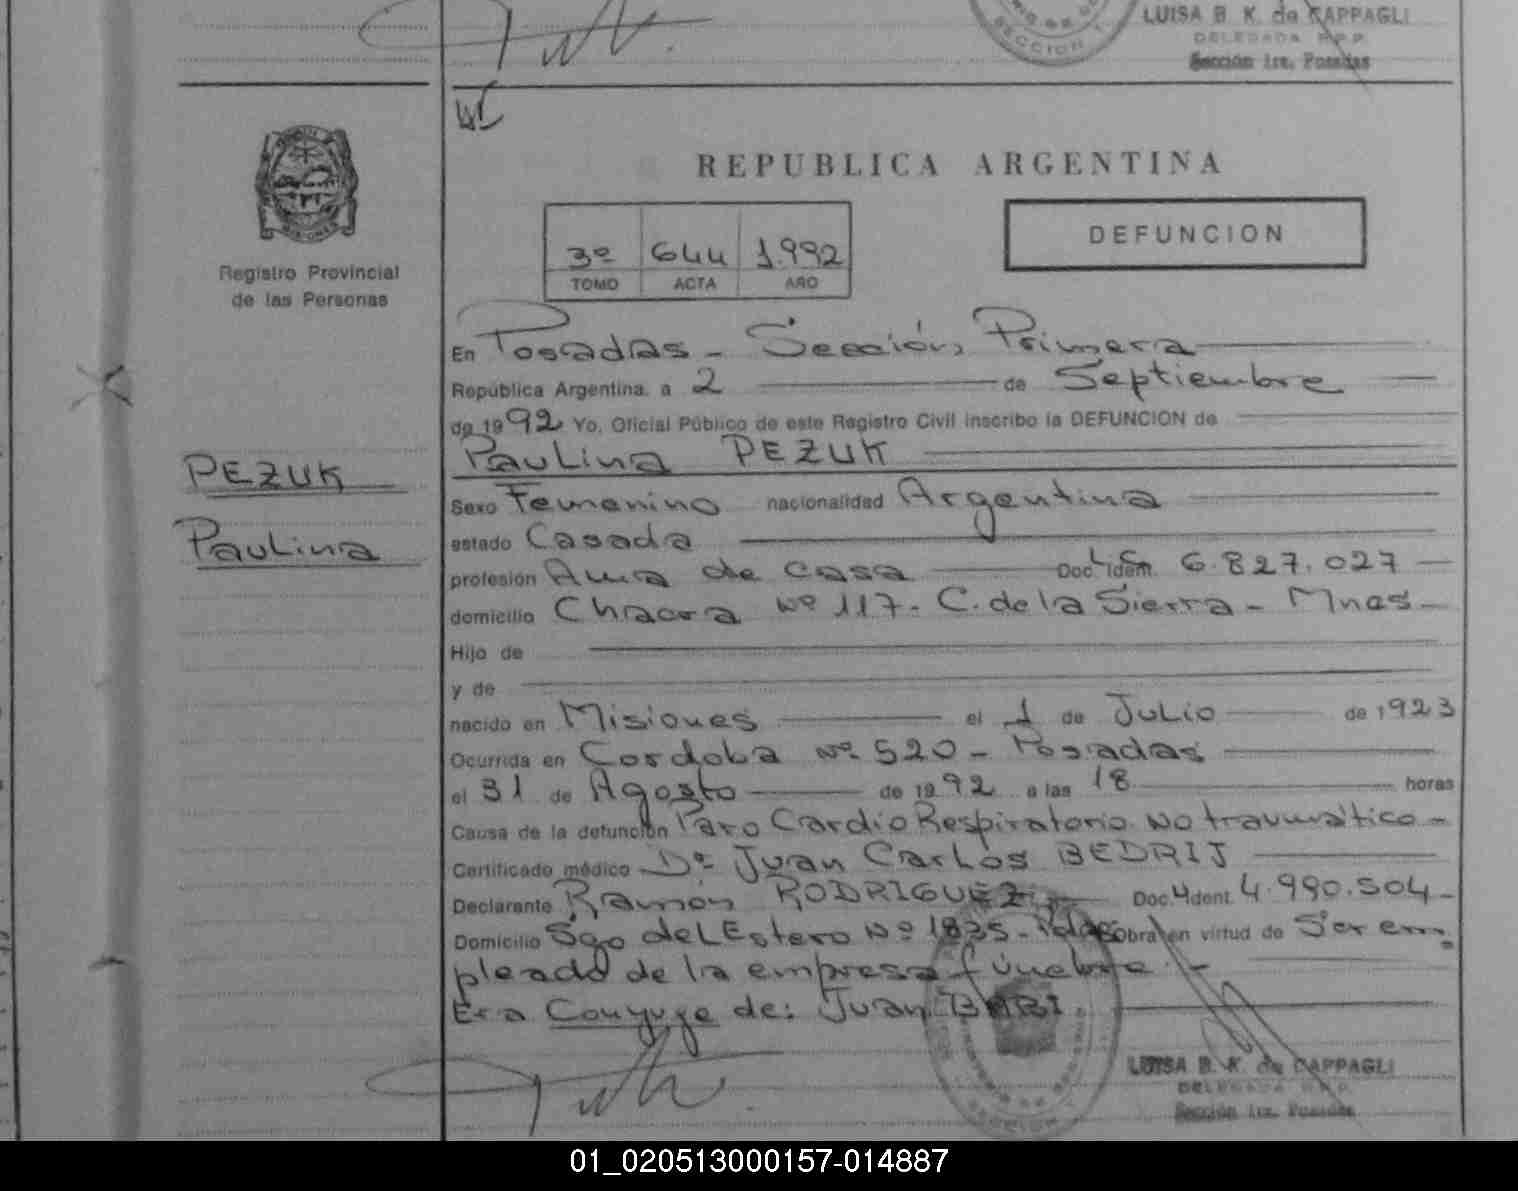 LUISA B. K. de CAPPAGLI
DELEGADA R.P.P.
Sección 1ra. Posadas
REPUBLICA ARGENTINA
3º 644 1.992
TOMO ACTA AÑO
DEFUNCION
Registro Provincial
de las Personas
PEZUK
Paulina
En Posadas - Sección Primera
República Argentina, a 2 de Septiembre
de 1992 Yo, Oficial Público de este Registro Civil inscribo la DEFUNCION de
Paulina PEZUK
Sexo Femenino nacionalidad Argentina
estado Casada
profesión Ama de casa Doc. Ident. L.C. 6.827.027
domicilio Chacra Nº 117 - C. de la Sierra - Mnes -
Hijo de
y de
nacido en Misiones el 1 de Julio de 1923
Ocurrida en Cordoba Nº 520 - Posadas
el 31 de Agosto de 1992 a las 18 horas
Causa de la defunción Paro Cardio Respiratorio No traumático -
Certificado médico Dº Juan Carlos BEDRIJ
Declarante Ramón RODRIGUEZ Doc. Ident. 4.990.504 -
Domicilio Sgo del Estero Nº 1835 - Pdas Obra en virtud de Ser em
pleado de la empresa fúnebre. -
Era Conyuge de: Juan BABI
LUISA B. K. de CAPPAGLI
DELEGADA R.P.P.
Sección 1ra. Posadas
01_020513000157-014887